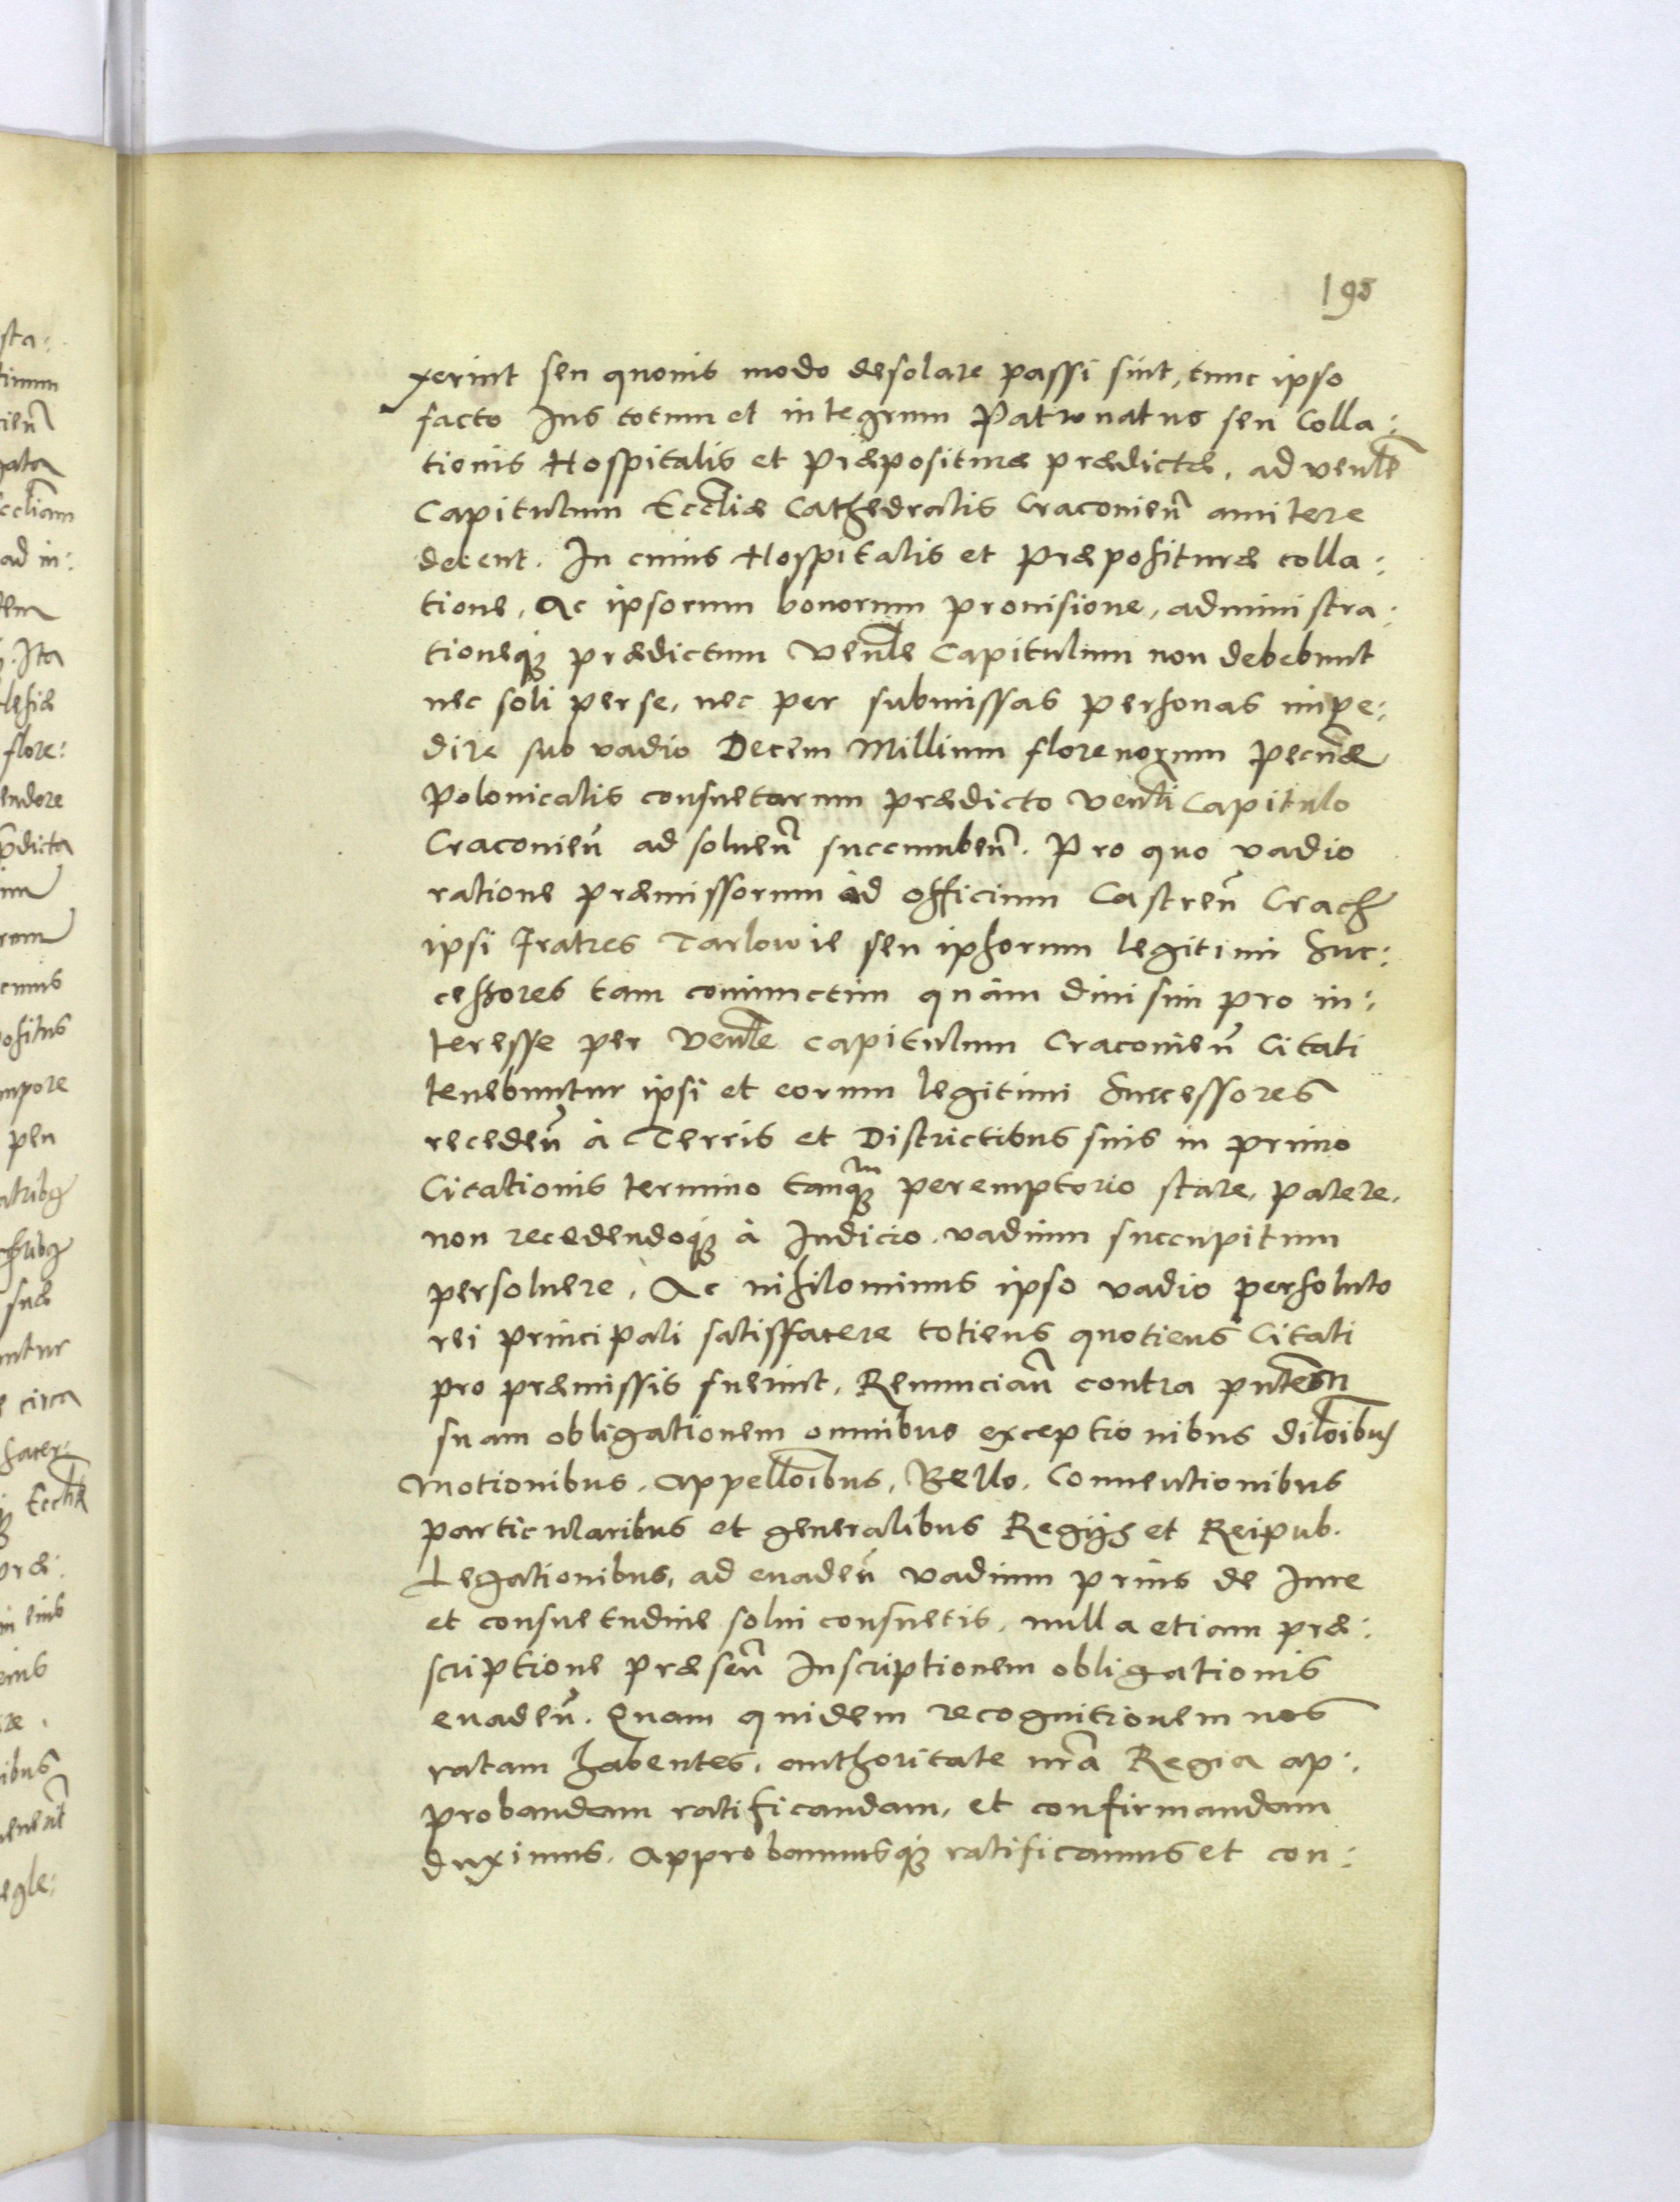 198
xerint seu quouis modo desolare passi sint, tunc ipso
facto Ius totum et integrum Patronatus seu Colla:
tionis Hospitalis et Præpositurae prædictæ, ad venle
Capitulum Eccliæ Cathedralis Cracovien amitere
decent. In cuius Hospitalis et Præpositurae colla:
tione, Ac ipsorum bonorum prouisione, administra:
tioneque prædictum Venle Capitulum non debebunt
nec soli per se, nec per submissas personas impe:
dire sub vadio Decem Millium florenorum pecuniæ
Polonicalis consuetarum prædicto venli Capitulo
Cracouien ad soluen succumben. Pro quo vadio
ratione præmissorum ad officium Castren Crach
ipsi Fratres Tarlowie seu ipsorum legitimi Suc:
cessores tam coniunctim quàm diuisim pro in:
teresse per Venle Capitulum Cracouien Citati
tenebuntur ipsi et eorum legitimi Successores
receden à Terris et Districtibus suis in primo
Citationis termino tanquam peremptorio stare, parere,
non recedendoque à Iudicio, vadium succupitum
persoluere, Ac nihilominus ipso vadio persoluto
rei principali satisfacere totiens quotiens Citati
pro præmissis fuerint, Renuncian contra pntem
suam obligationem omnibus exceptionibus diloibus
motionibus, appelloibus, Bello, Conuentionibus
particularibus et generalibus Regijs et Reipub.
Legationibus, ad euaden vadium prius de Iure
et consuetudine solui consuetis, nulla etiam præ:
scriptione præsen Inscriptionem obligationis
euaden. Quam quidem recognitionem nos
ratam habentes, authoritate nra Regia ap:
probandam ratificandam, et confirmandam
duximus, approbamusque ratificamus et con: